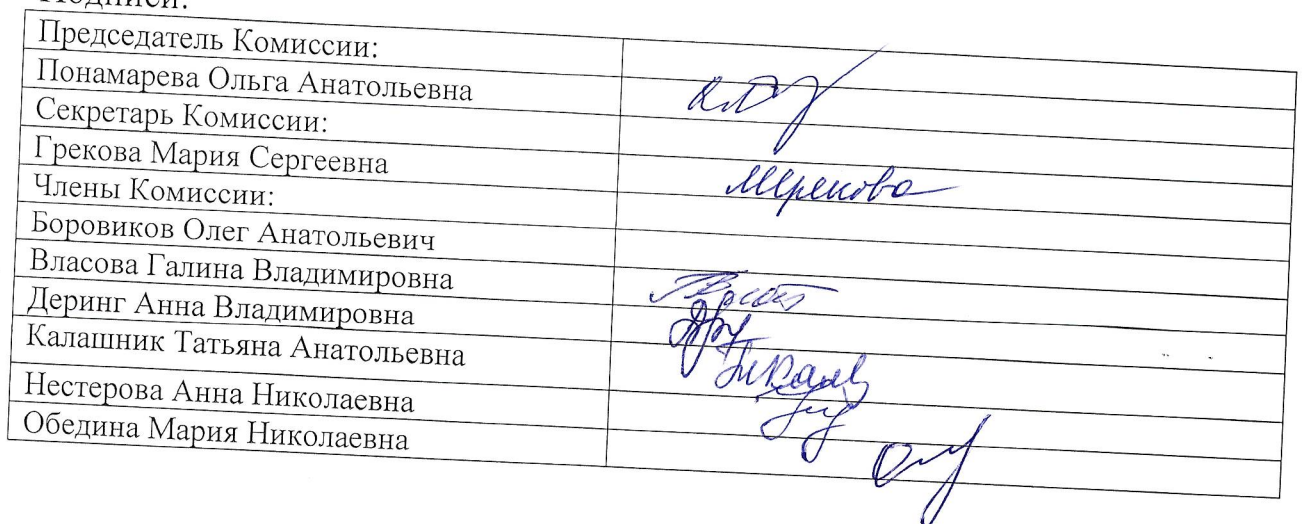 Подписи:
Председатель Комиссии:
Понамарева Ольга Анатольевна
Секретарь Комиссии:
Грекова Мария Сергеевна
Мгрекова
Члены Комиссии:
Боровиков Олег Анатольевич
Власова Галина Владимировна
Деринг Анна Владимировна
Калашник Татьяна Анатольевна
Нестерова Анна Николаевна
Обедина Мария Николаевна